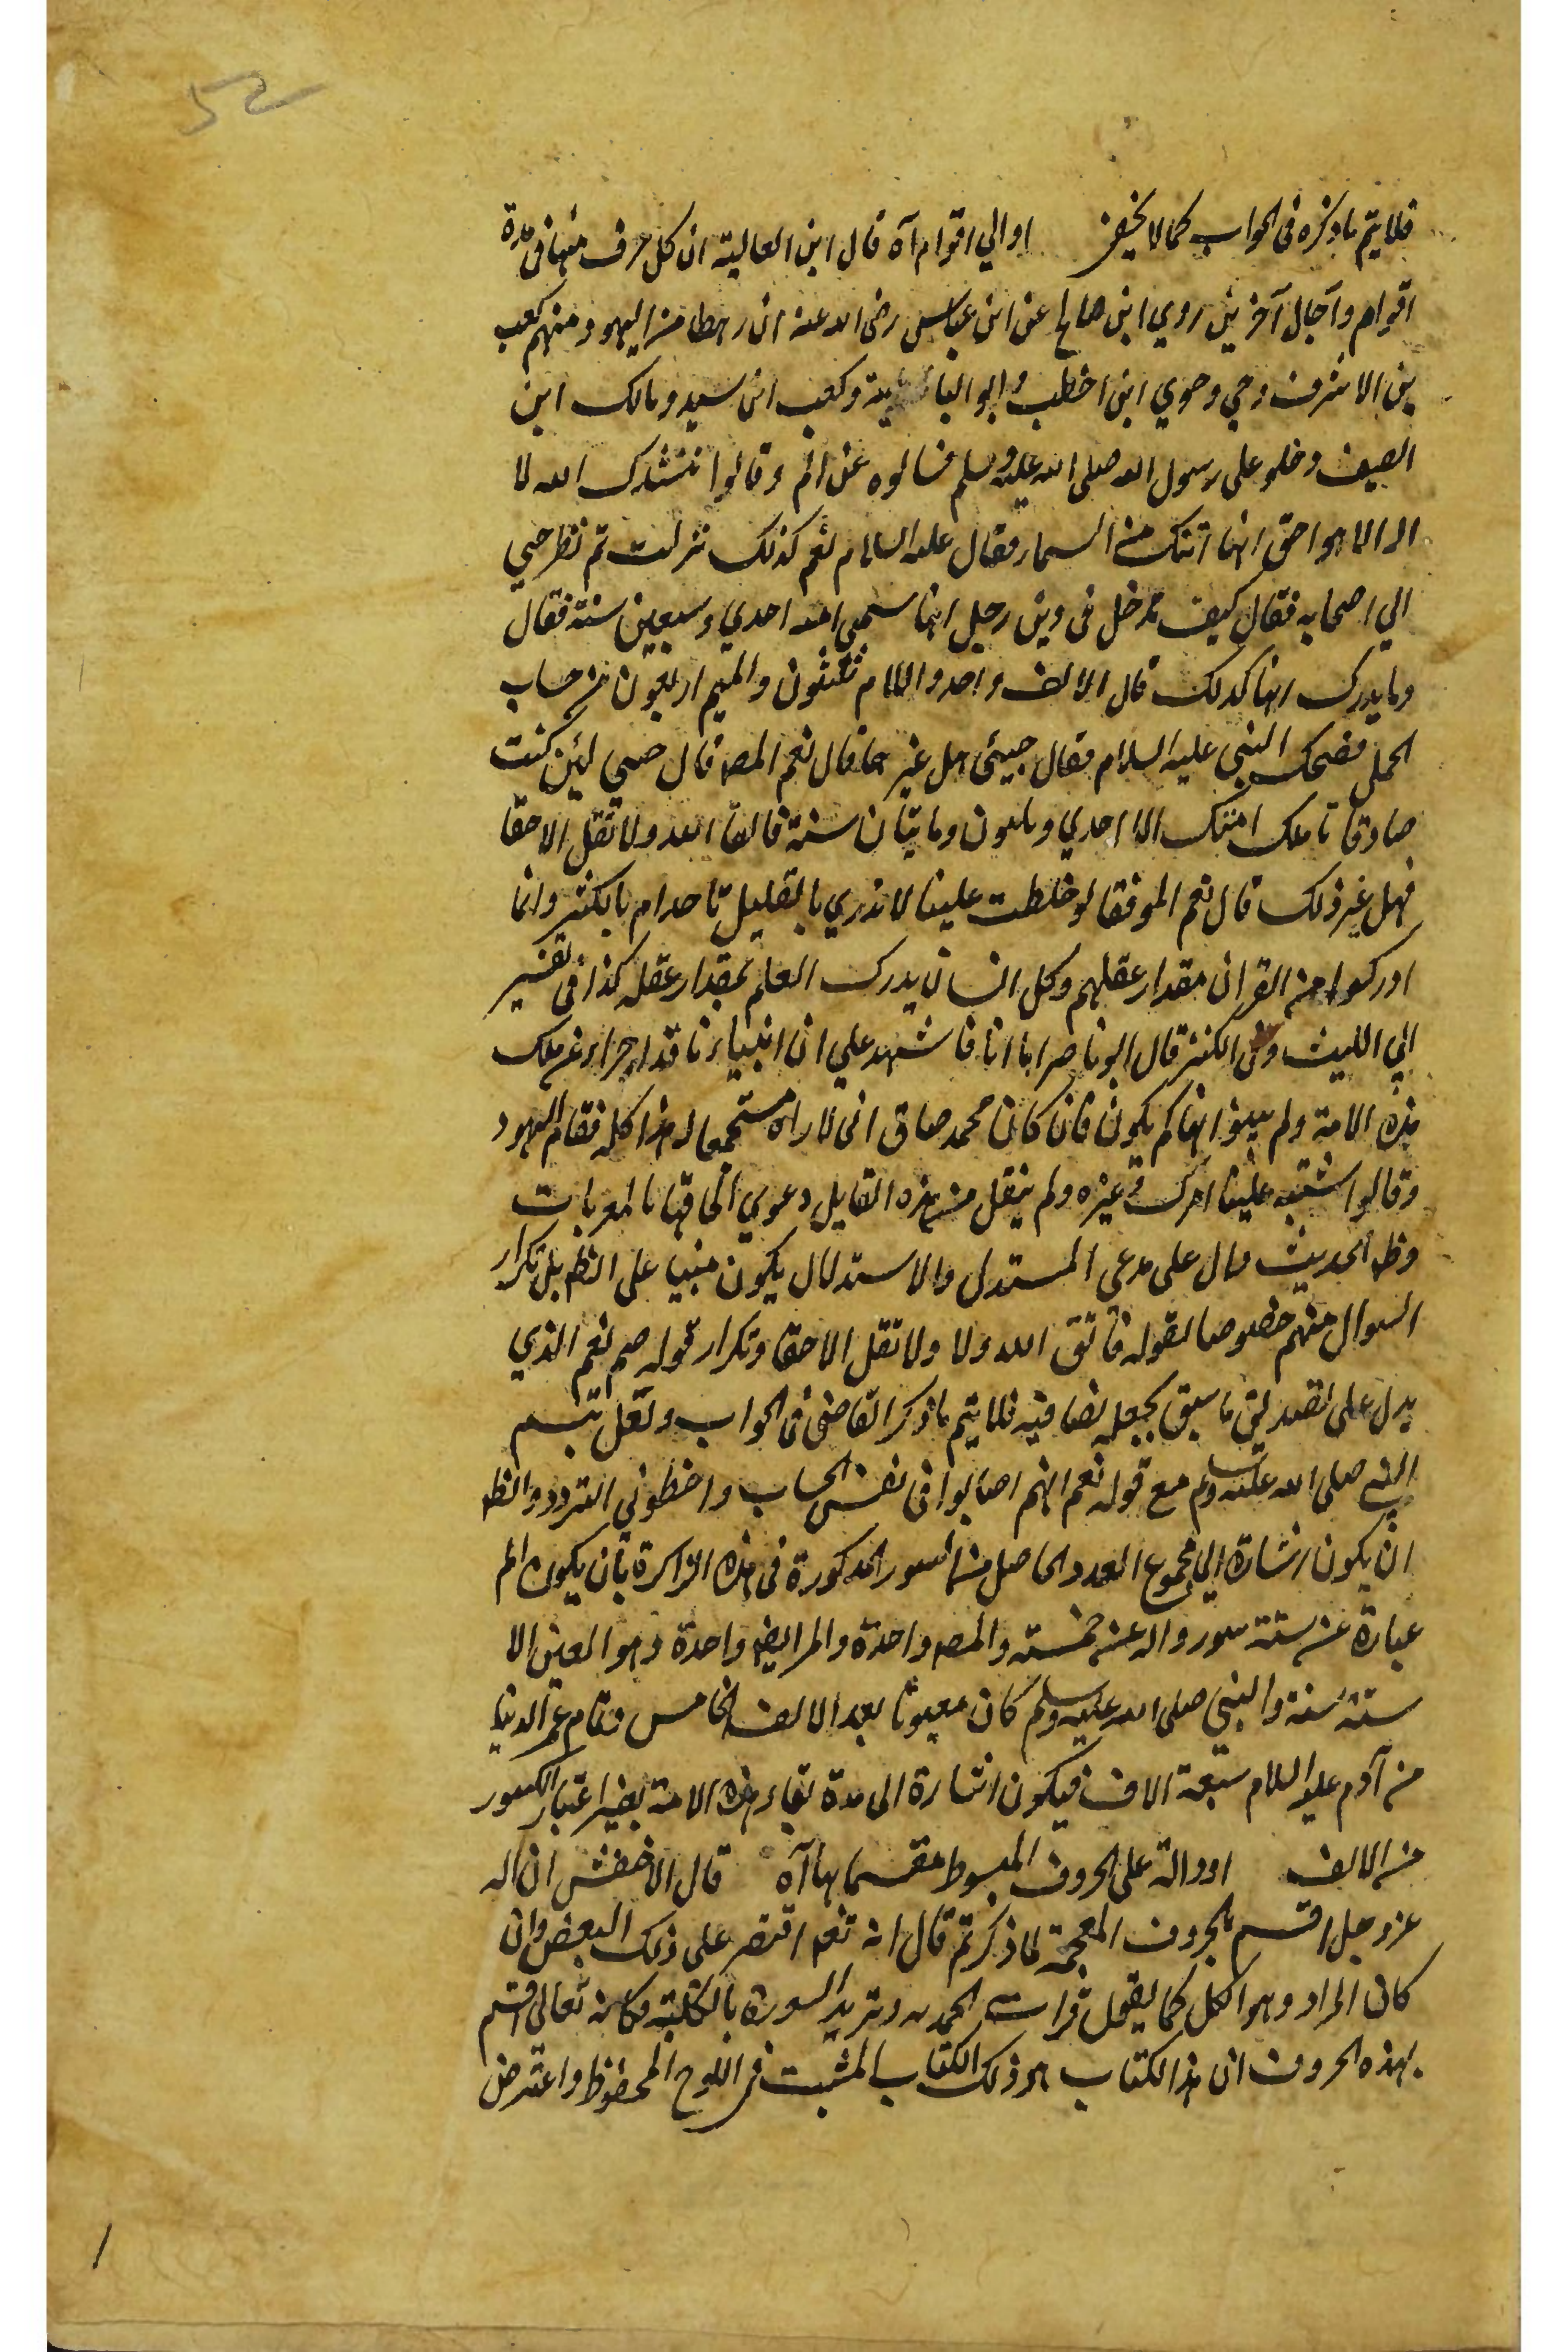 52
فلا يتم ما ذكره في الجواب كما لا يخفى اوالي اقوام آه قال ابن العالية ان كل حرف منها في مدة
اقوام وآجال آخرين روي ابن صالح عن ابن عباس رضى الله عنه ان رهطا من اليهود منهم كعب
بن الاشرف وحي وحوي ابنى اخطب وابو اليا وكعب ابن سيد ومالك ابن
الصيف دخلو على رسول الله صلى الله عليه وسلم فسالوه عن الم وقالوا ننشدك الله لا
اله الا هو احق انها اتتك من السماء فقال عليه السلام نعم كذلك نزلت ثم نظر حيي
الي اصحابه فقال كيف ندخل في دين رجل انها سمى امته احدي وسبعين سنة فقال
وما يدرك انها كذلك قال الالف واحد واللام ثلثون والميم اربعون من حساب
الجمل فضحك النبي عليه السلام فقال جيئى هل غير ها قال نعم المص قال حيي لئن كنت
صادقا تا ملك امتك الا احدي وثلثون ومايتان سنة فاتق الله ولا تقل الا حقا
فهل غير ذلك قال نعم المر فقالو خلطت علينا لا ندري بالقليل تاخذ ام بالكثير وانما
ادركوا من القران مقدار عقلهم وكل انسان يدرك العلم بمقدار عقله كذا في تفسير
ابي الليث وفي الكنز قال ابو ناصر اما انا فاشهد علي ان انبياءنا قد اخبروا عن ملك
هذه الامة ولم يبينوا انها كم يكون فان كان محمد صادق انى لا راه مستجمعا له هذا كله فقام اليهود
وقالوا اشتبه علينا امرك وغيره ولم ينقل من هذه القايل دعوي الحاقها بالمعربات
وظ الحديث دال على مدعى المستدل والاستدلال يكون مبنيا على الظ بل تكرار
السوال منهم خصوصا لقوله فاتق الله ولا ولا تقل الا حقا وتكرار قوله صم نعم الذي
يدل على تصديق ما سبق يجعله نصا فيه فلا يتم ما ذكر القاضى في الجواب ولعل تبسم
النبي صلى الله عليه وسلم مع قوله نعم انهم اصابوا في نفس الحساب واخطوا في التردد والظ
ان يكون اشارة الي مجموع العدد الحاصل من السور المذكورة في هذه الزاكرة بان يكون الم
عبارة عن ستة سور والر عن خمسة والمص واحدة والمر ايضا واحدة وهو المعنى الا
ستة سنة والنبي صلى الله عليه وسلم كان مبعوثا بعد الالف الخامس وتمام عمر الدنيا
من آدم عليه السلام سبعة الاف فيكون اشارة الى مدة بقاء هذه الامة بغير اعتبار الكسور
من الالف اودالة على الحروف المبسوط مقسما بها آه قال الاخفش ان الله
عز وجل اقسم بالحروف المعجمة لما ذكر ثم قال انه تعم اقتصر على ذلك البعض وان
كان المراد وهو الكل كما يقول قرات الحمد لله وتريد السورة بالكلية وكانه تعالى اقسم
بهذه الحروف ان هذا الكتاب هو ذلك الكتاب المثبت في اللوح المحفوظ واعترض